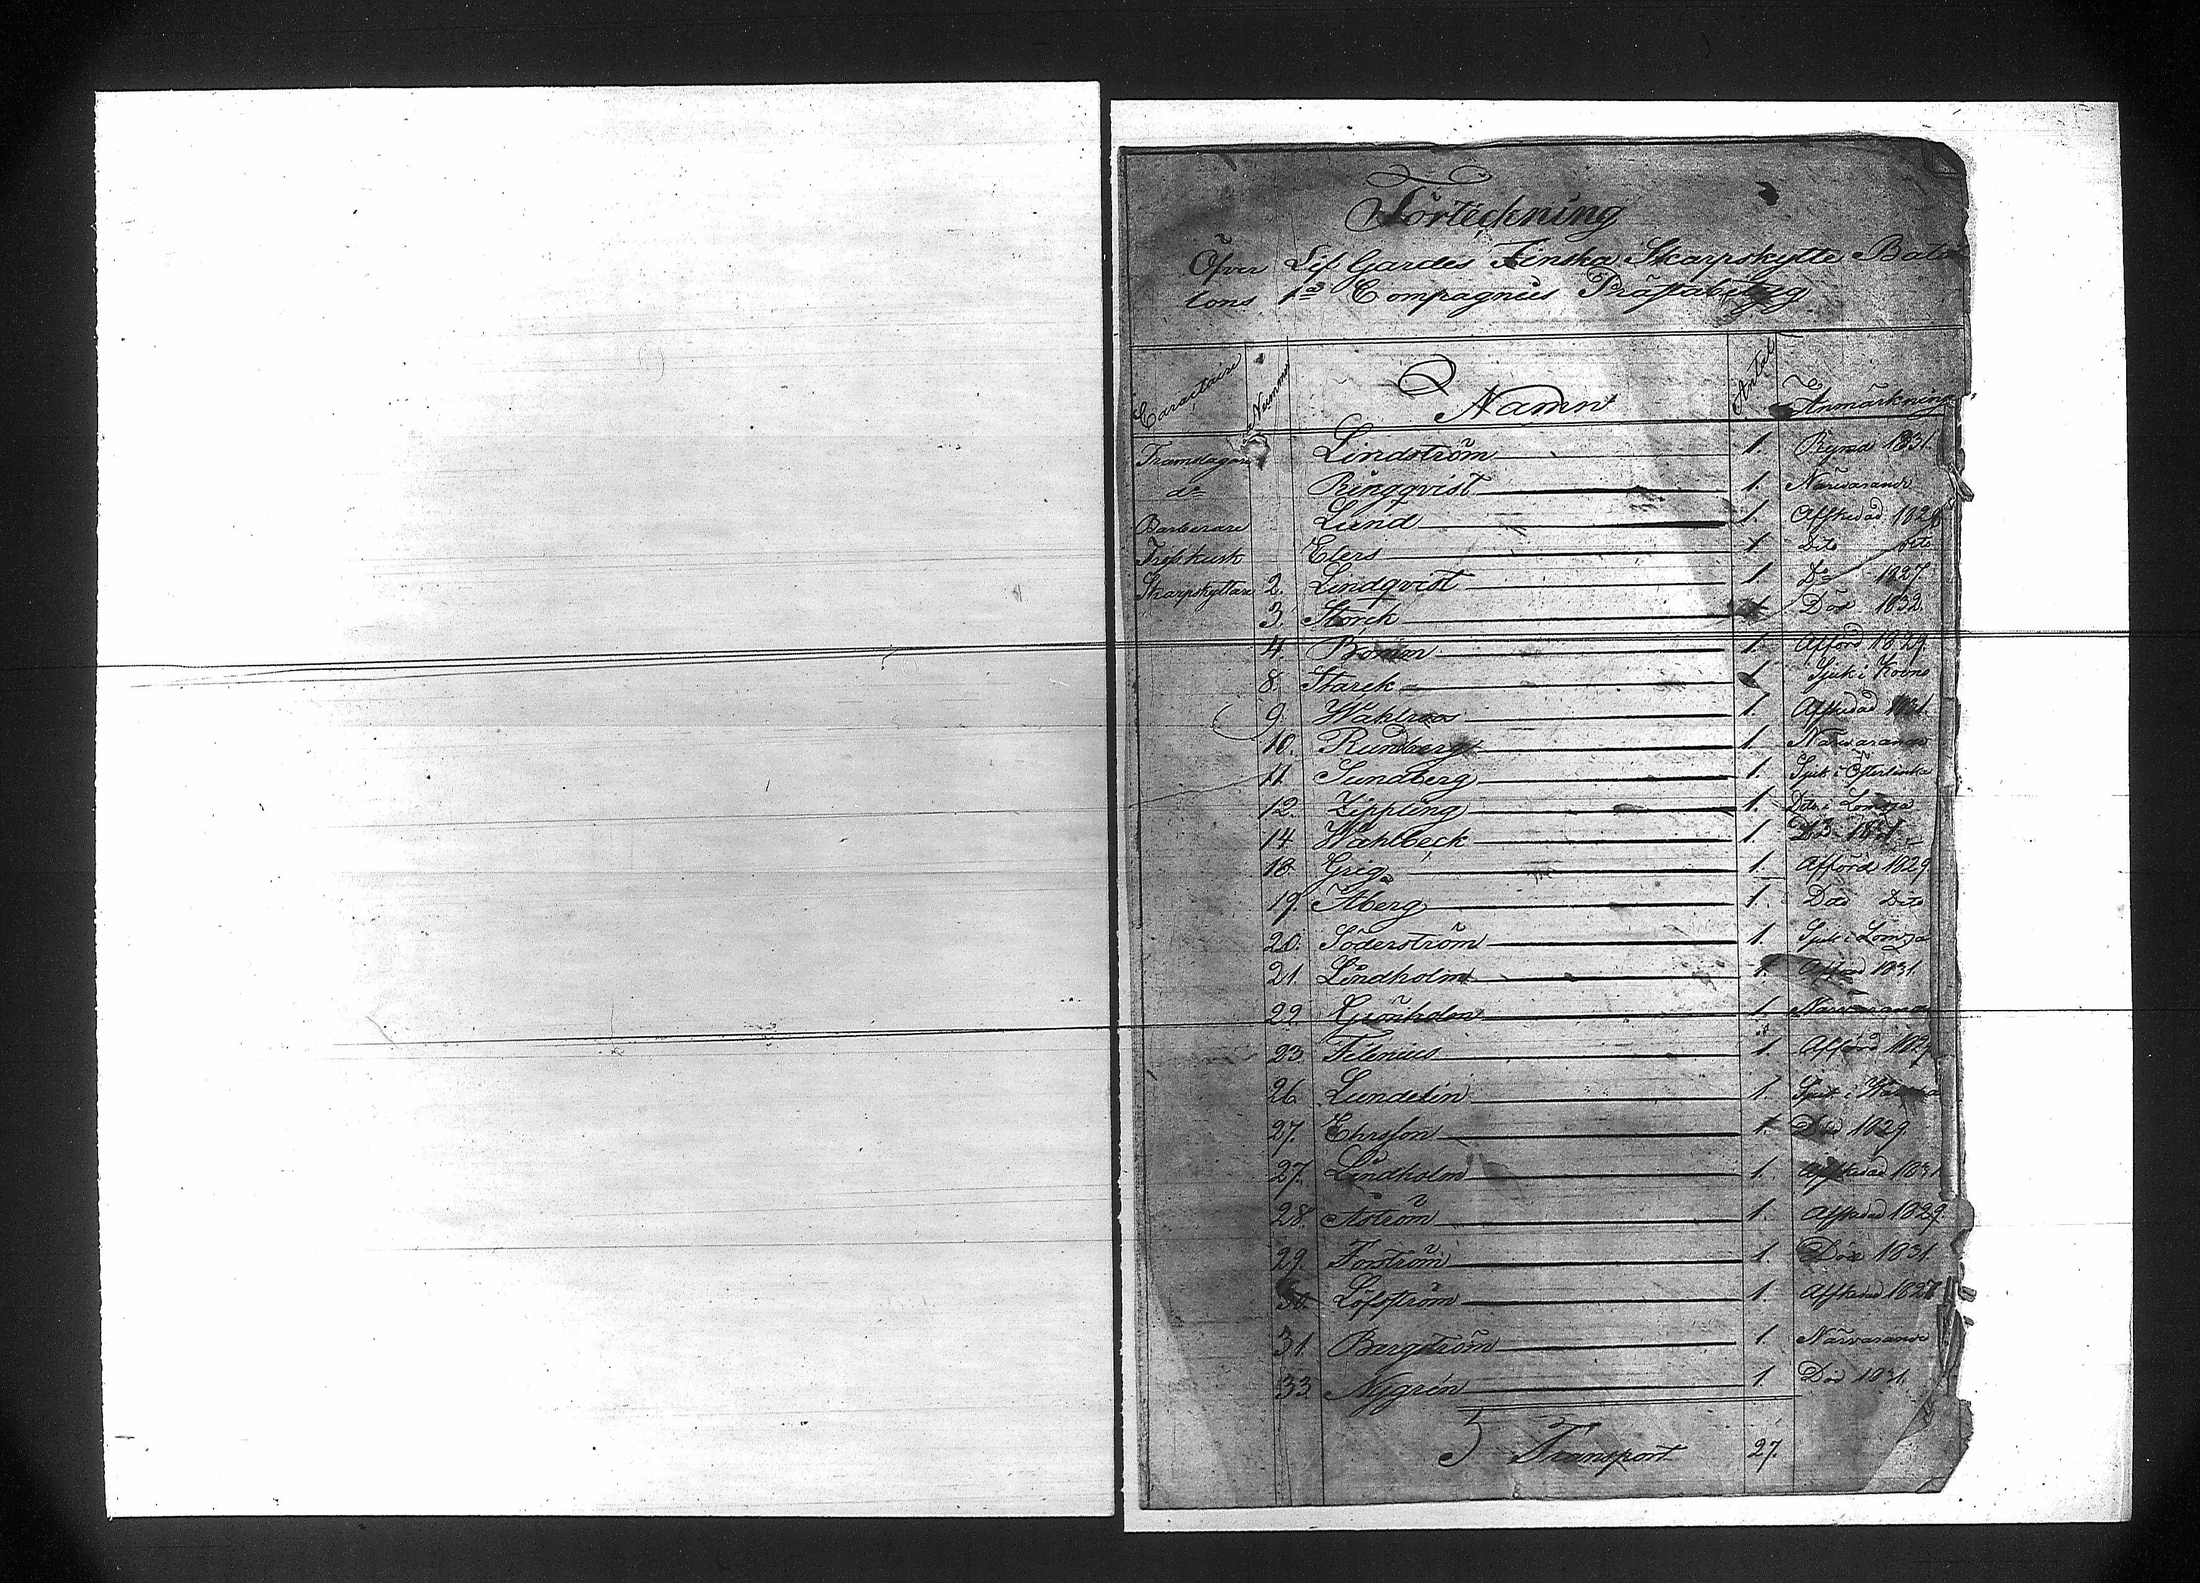 Förtickning
Öfver Lif Gardes Finska Skarpskytte Batal
lons 1a Compagnies
Caractaire Nummer Namn Antal Anmärkning
Lindström 1. Rymd 1831.
do Ringqvist 1. Närvarande
Barberare Lund 1. Afskedad
Trosskusk Elers 1 Dito Dito
Skarpskyttare 2. Lindqvist 1 Do 1827.
3. Storck 1 Död 1832.
4. 1. Afförd 1829.
8. Starck 1 Sjuk i Kovno
9. Wahlroos 1. Afskedad 1831.
10. Rundberg 1. Närvarande
11 Sundberg 1. Sjuk i
12. Zippling 1. Dito i Lomza
14 Wahlbeck 1. 1831
18. Grig 1. Afförd 1829
19. Åberg 1. Död Dito
20. Söderström 1. Sjuk i Lomza
21. Lindholm 1. Afförd 1831.
22 Grönholm 1. Närvarande
23. Filenius 1. Afförd 1829
26 Lundelin 1. Sjuk i
27. Ehrsson 1. Död 1829.
27. Lindholm 1. Afskedad 1831
28. Åström 1. Afskedad 1829
29. Forström 1. Död 1831.
30. Löfström 1. Afskedad 1827
31. Bergström 1. Närvarande
33. Nygrén 1. Död 1831.
Transport 27.